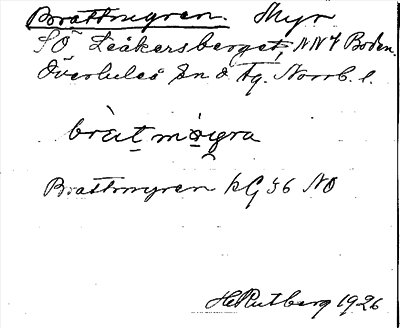 Brattmyren. Myr
SÖ Leåkersberget, NNV Boden.
Överluleå sn o tg. Norrb. l.
bràt mỳra
Brattmyren kG 36 NO
H. Rutberg 1926